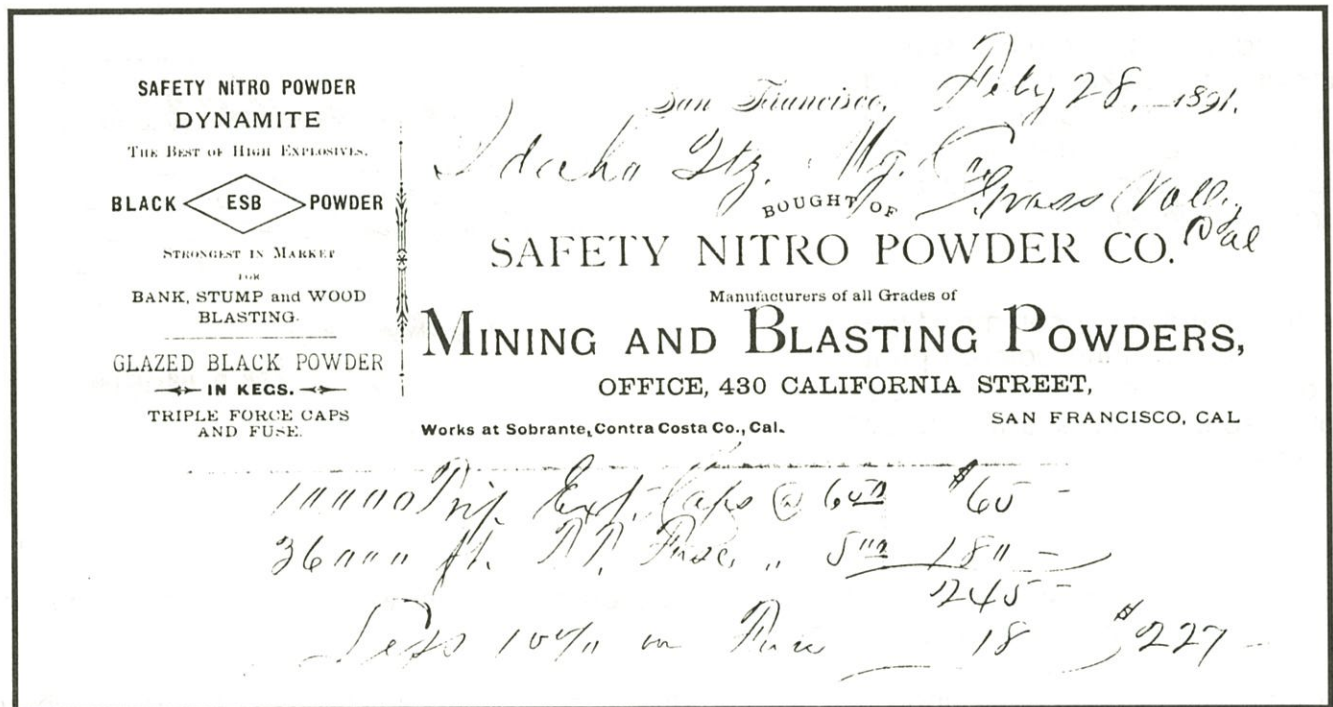 SAFETY NITRO POWDER
DYNAMITE
THE BEST OF HIGH EXPLOSIVES.
BLACK ESB POWDER
STRONGEST IN MARKET
FOR
BANK, STUMP and WOOD
BLASTING.
GLAZED BLACK POWDER
IN KEGS.
TRIPLE FORCE CAPS
AND FUSE.
San Francisco, Feby 28, 1891.
Idaho Qtz. Mg. Co
Grass Valley
Cal
BOUGHT OF
SAFETY NITRO POWDER CO.
Manufacturers of all Grades of
MINING AND BLASTING POWDERS,
OFFICE, 430 CALIFORNIA STREET,
SAN FRANCISCO, CAL
Works at Sobrante, Contra Costa Co., Cal.
10000 Caps @ 6.50 $65 -
36000 ft. T.T. Fuse, " 5.00 180 -
245 -
Less 10% on Fuse 18 $227 -